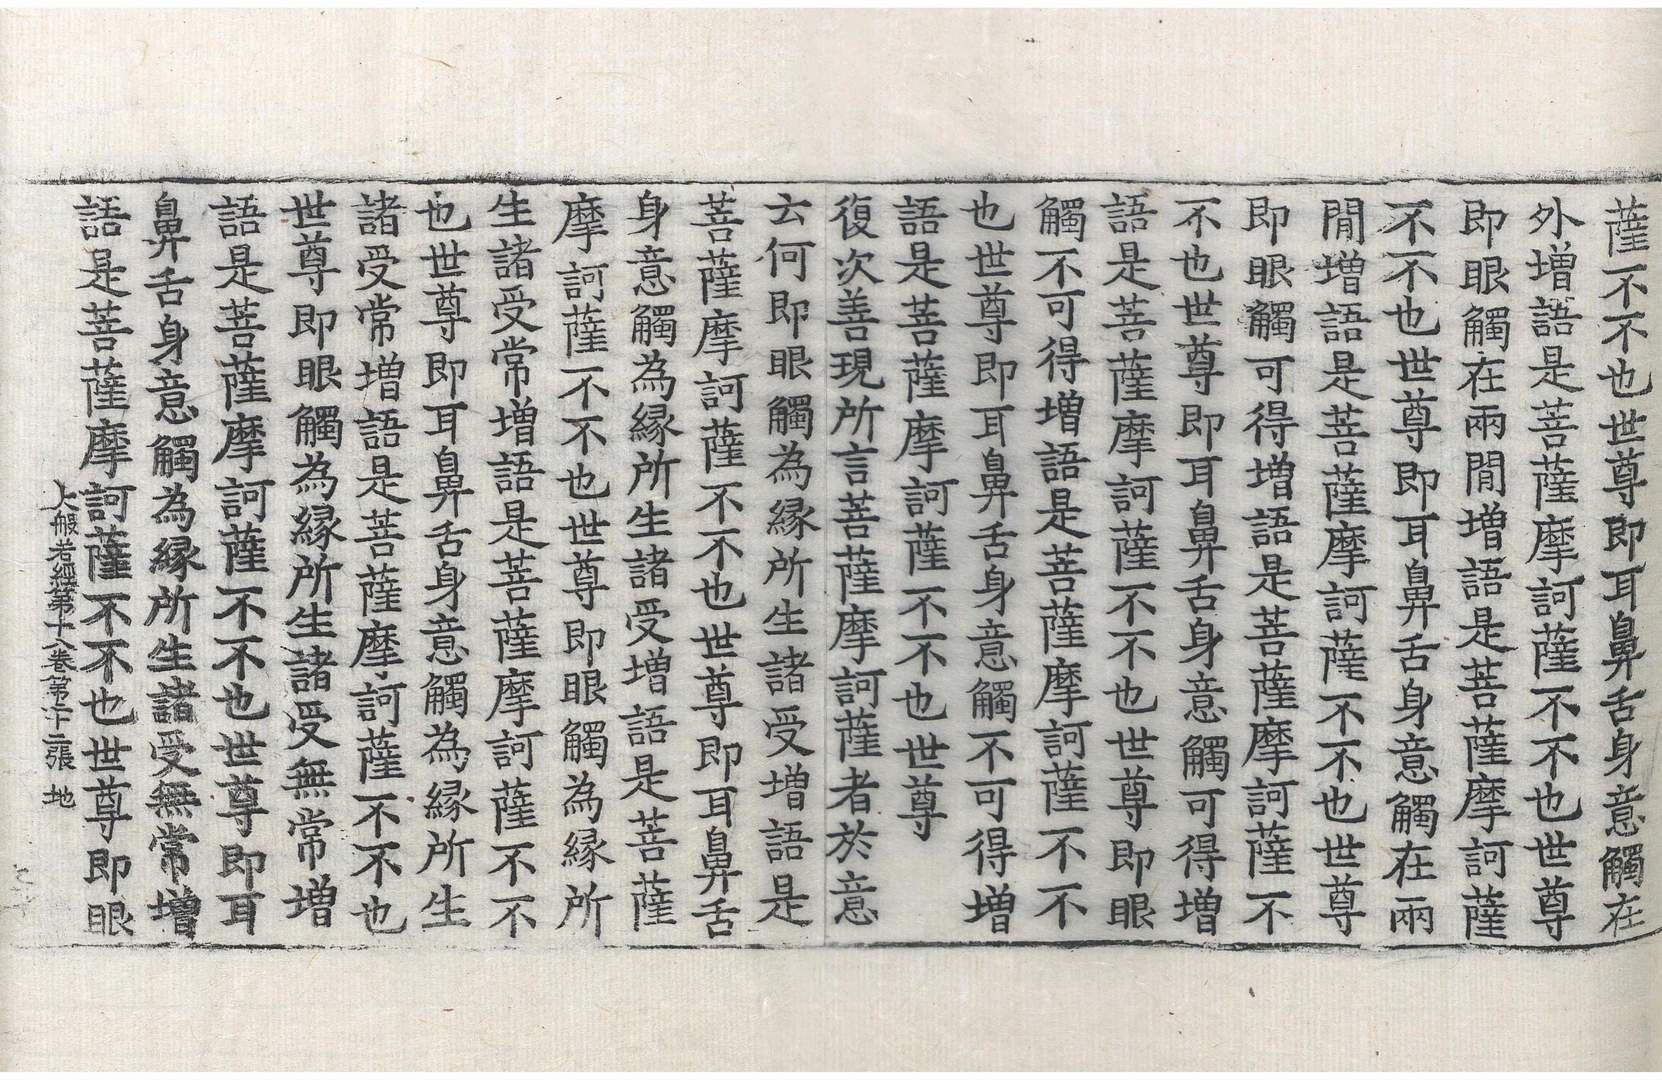 薩不不也世尊即耳鼻舌身意觸在
外增語是菩薩摩訶薩不不也世尊
即眼觸在兩閒增語是菩薩摩訶薩
不不也世尊即耳鼻舌身意觸在兩
閒增語是菩薩摩訶薩不不也世尊
即眼觸可得增語是菩薩摩訶薩不
不也世尊即耳鼻舌身意觸可得增
語是菩薩摩訶薩不不也世尊即眼
觸不可得增語是菩薩摩訶薩不不
也世尊即耳鼻舌身意觸不可得增
語是菩薩摩訶薩不不也世尊
復次善現所言菩薩摩訶薩者於意
云何即眼觸為緣所生諸受增語是
菩薩摩訶薩不不也世尊即耳鼻舌
身意觸為緣所生諸受增語是菩薩
摩訶薩不不也世尊即眼觸為緣所
生諸受常增語是菩薩摩訶薩不不
也世尊即耳鼻舌身意觸為緣所生
諸受常增語是菩薩摩訶薩不不也
世尊即眼觸為緣所生諸受無常增
語是菩薩摩訶薩不不也世尊即耳
鼻舌身意觸為緣所生諸受無常增
語是菩薩摩訶薩不不也世尊即眼
大般若經第十八卷第二十二張 地